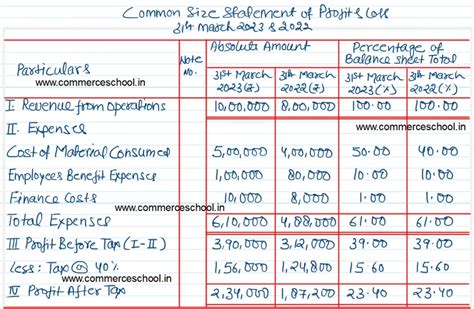 Common Size Statement of Profit & Loss
31st March 2023 & 2022
Particulars Note No. Absolute Amount Percentage of Balance sheet Total
31st March 2023(₹) 31st March 2022(₹) 31st March 2023(%) 31st March 2022(%)
www.commerceschool.in
I. Revenue from Operations 10,00,000 8,00,000 100.00 100.00
www.commerceschool.in
II. Expenses
Cost of Material Consumed 5,00,000 4,00,000 50.00 40.00
Employees Benefit Expenses 1,00,000 80,000 10.00 10.00
Finance Costs 10,000 8,000 1.00 1.00
www.commerceschool.in
Total Expenses 6,10,000 4,88,000 61.00 61.00
III Profit Before Tax (I-II) 3,90,000 3,12,000 39.00 39.00
Less: Tax @ 40% 1,56,000 1,24,800 15.60 15.60
www.commerceschool.in
IV Profit After Tax 2,34,000 1,87,200 23.40 23.40